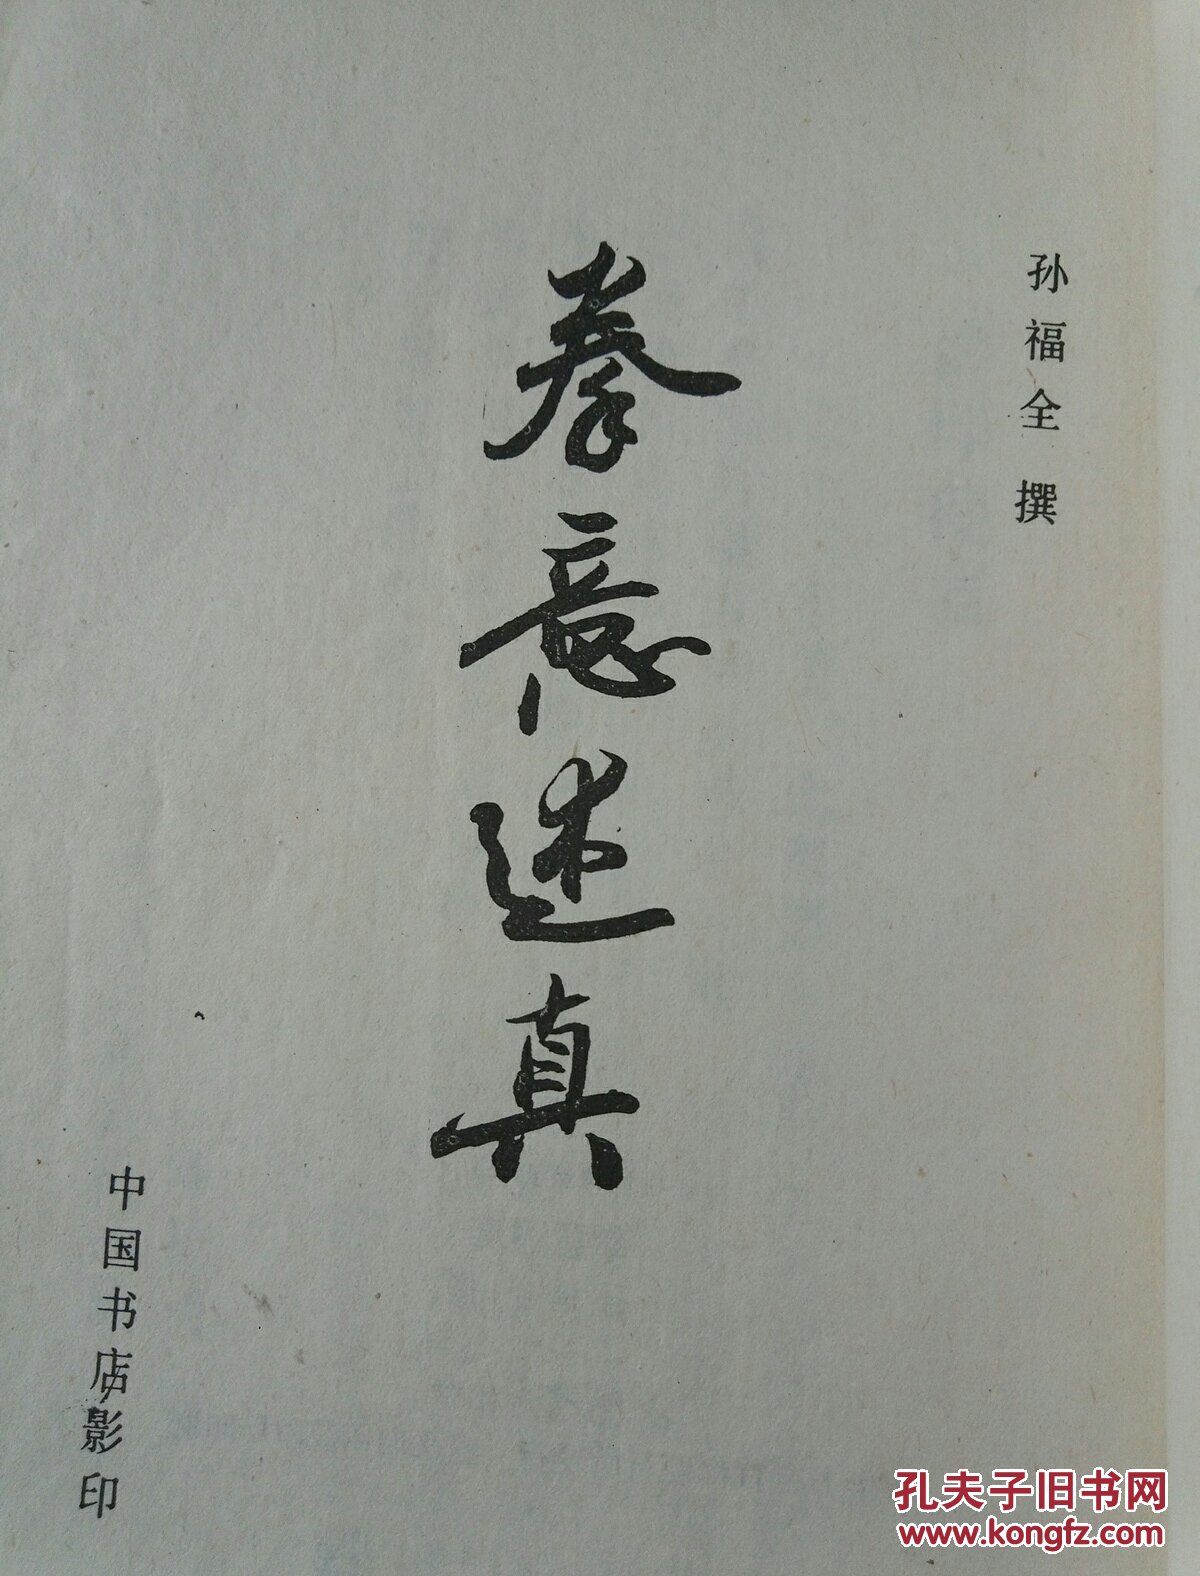 孙福全 撰
拳意述真
中国书店影印
孔夫子旧书网
www.kongfz.com